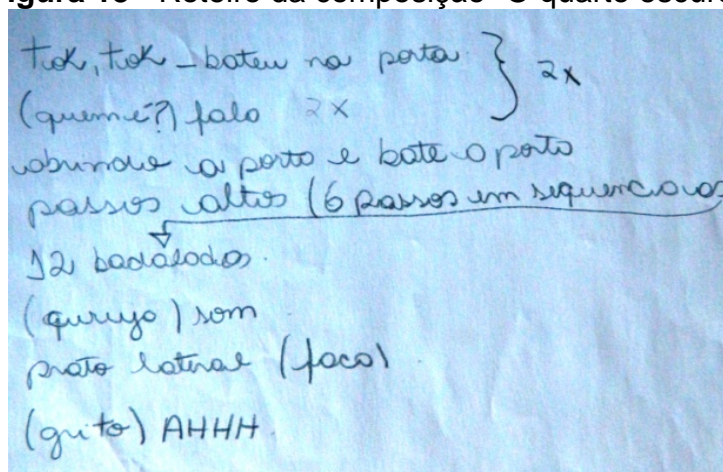 igura 18 - Roteiro da composição "O quarto escuro
tok, tok - bateu na porta } 2x
(quem é?) falo 2x
abrindo a porta e bate a porta
passos altos (6 passos em sequencia
12 badalados.
som
prato lateral (faca)
(grito) AHHH.